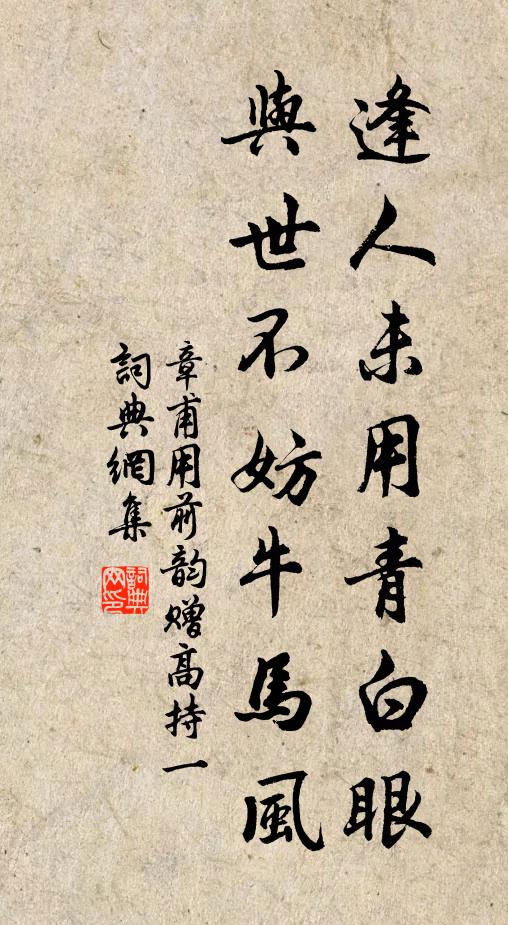 逢人未用青白眼
與世不妨牛馬風
章甫用前韵贈高持一
詞典網集
詞典